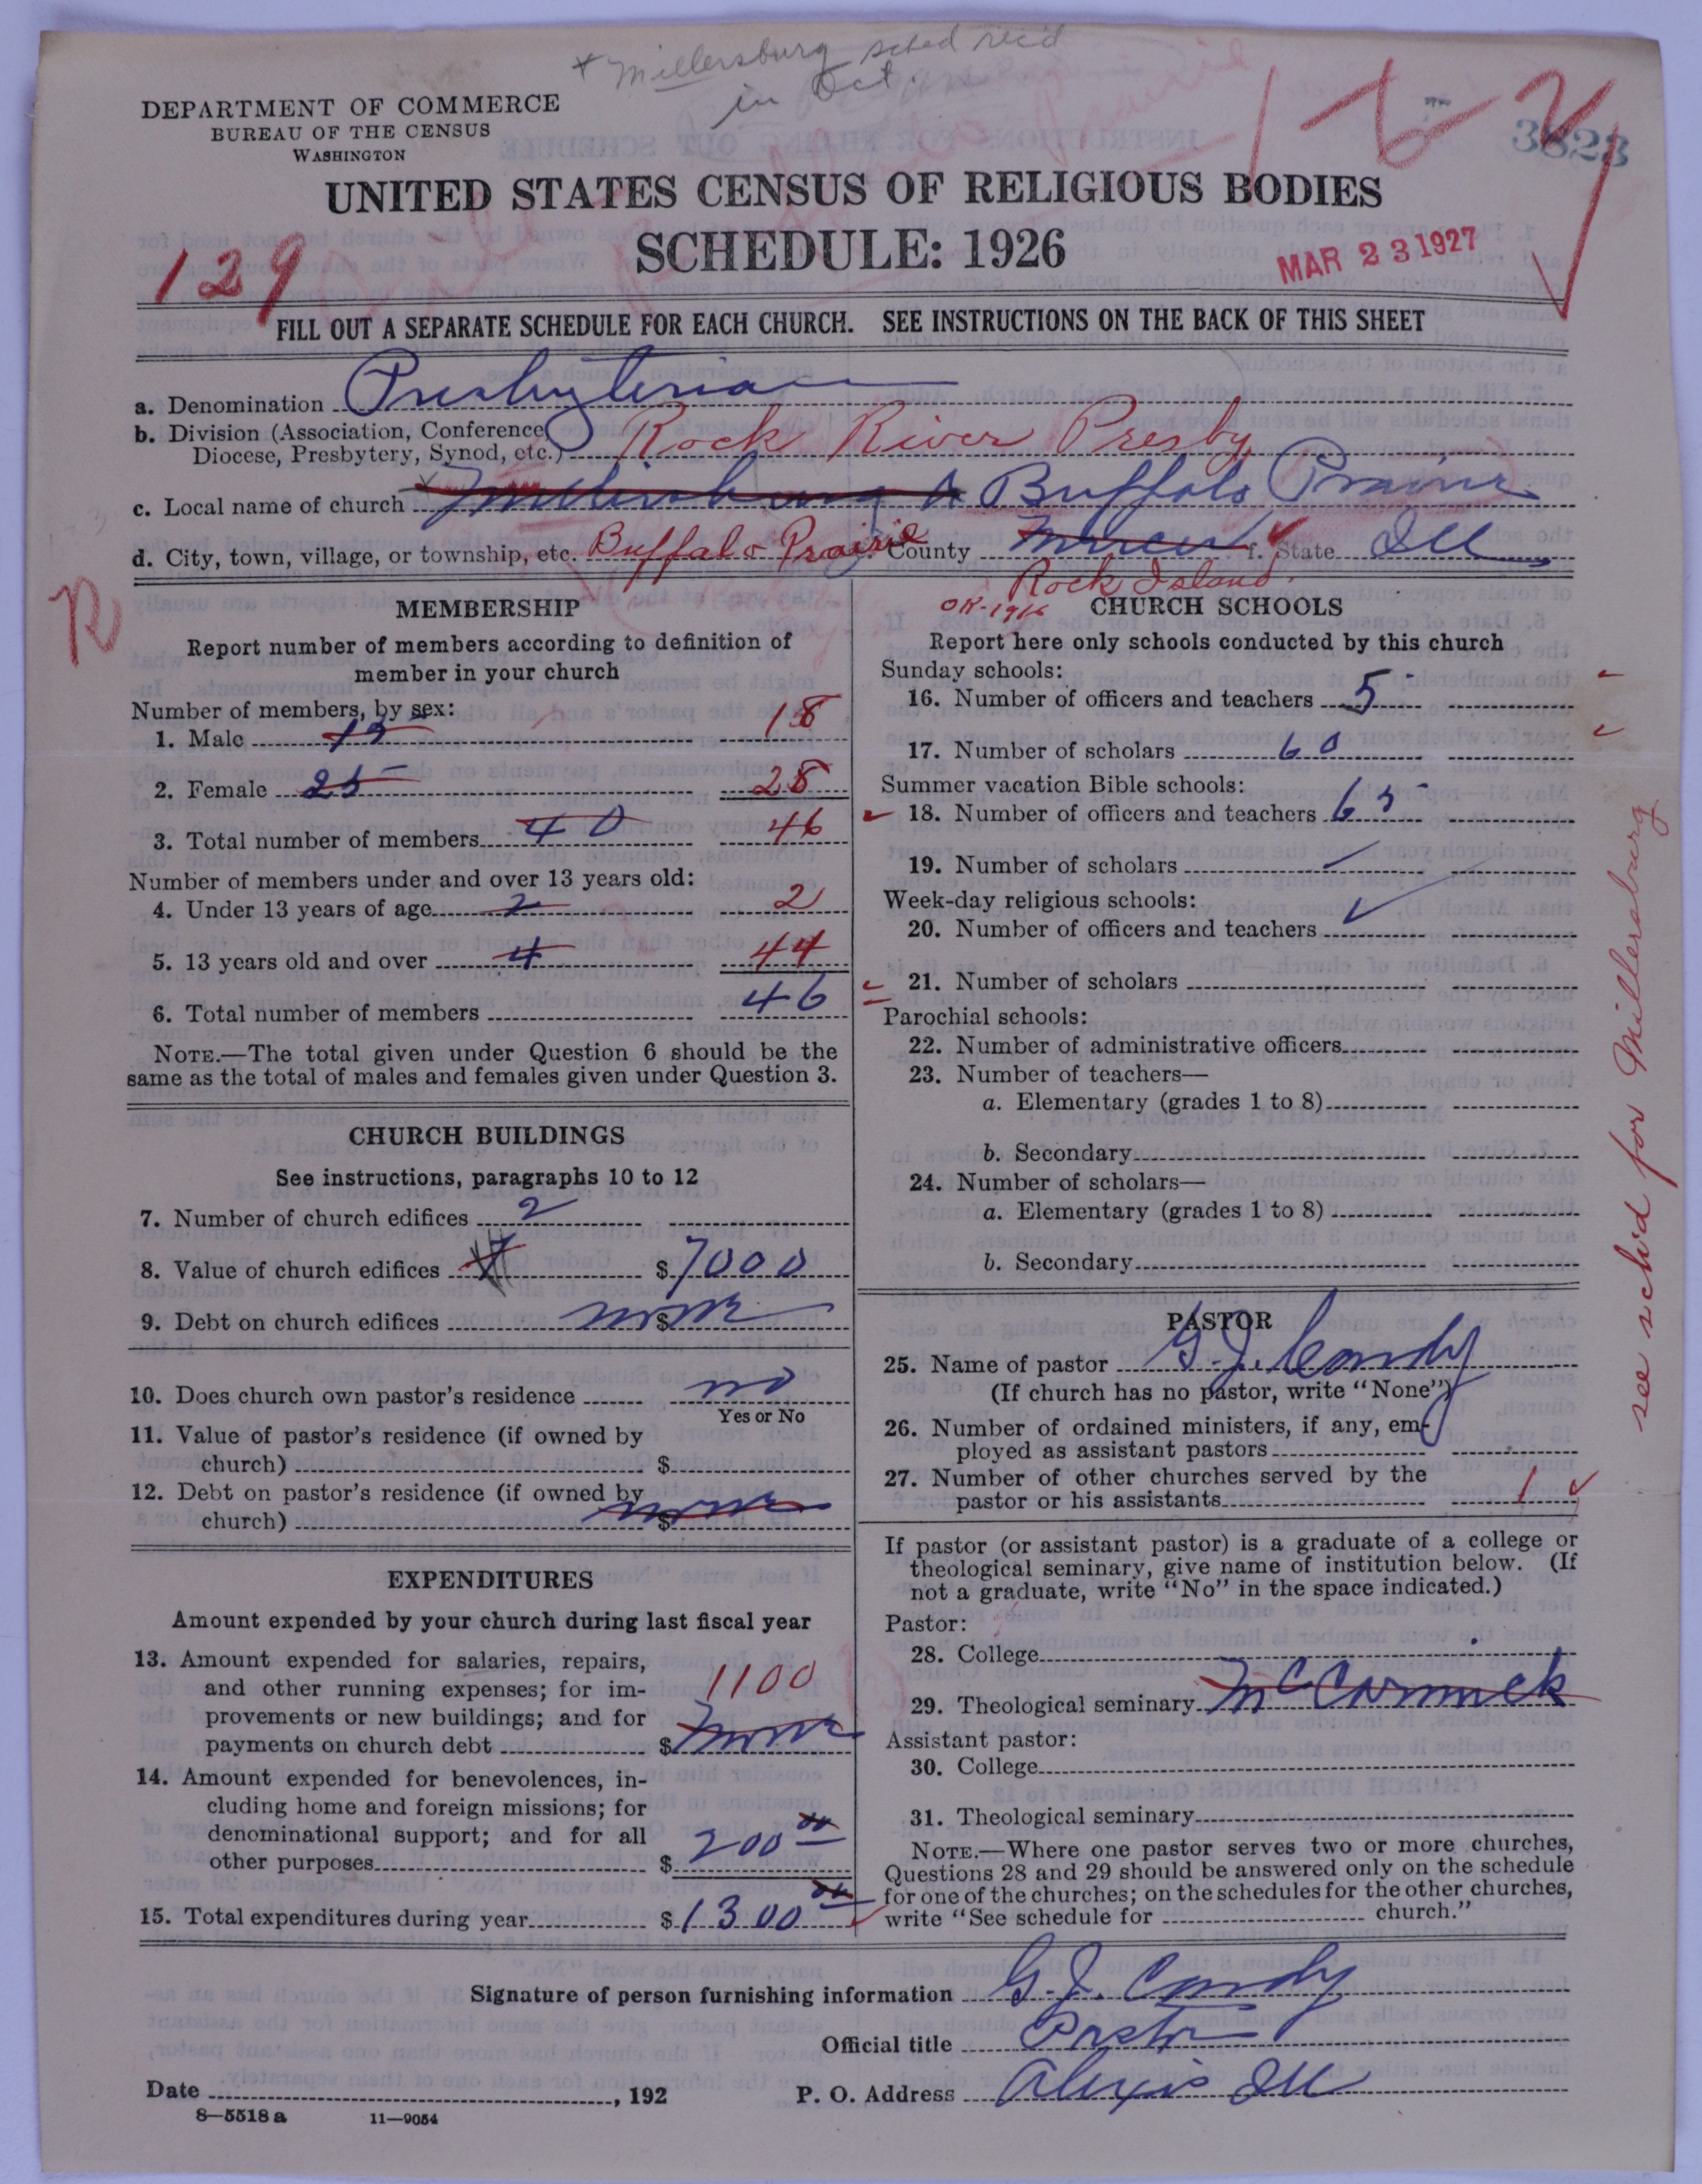 * Millersburg sched rec'd
in Oct.
DEPARTMENT OF COMMERCE
BUREAU OF THE CENSUS
WASHINGTON
1-6-2
3823
UNITED STATES CENSUS OF RELIGIOUS BODIES
SCHEDULE: 1926
129
MAR 23 1927
FILL OUT A SEPARATE SCHEDULE FOR EACH CHURCH. SEE INSTRUCTIONS ON THE BACK OF THIS SHEET
a. Denomination Presbyterian
b. Division (Association, Conference, Diocese, Presbytery, Synod, etc.) Rock River Presby
c. Local name of church Millersburg & Buffalo Prairie
d. City, town, village, or township, etc. Buffalo Prairie County Mercer f. State Ill
Rock Island.
OK-1916
R
MEMBERSHIP
Report number of members according to definition of
member in your church
Number of members, by sex:
1. Male 15 18
2. Female 25 28
3. Total number of members 40 46
Number of members under and over 13 years old:
4. Under 13 years of age 2 2
5. 13 years old and over 4 44
6. Total number of members 46
NOTE.—The total given under Question 6 should be the
same as the total of males and females given under Question 3.
CHURCH BUILDINGS
See instructions, paragraphs 10 to 12
7. Number of church edifices 2
8. Value of church edifices $ 7000
9. Debt on church edifices $ none
10. Does church own pastor's residence no
Yes or No
11. Value of pastor's residence (if owned by
church) $
12. Debt on pastor's residence (if owned by
church) $ none
EXPENDITURES
Amount expended by your church during last fiscal year
13. Amount expended for salaries, repairs,
and other running expenses; for im-
provements or new buildings; and for
payments on church debt $ none
1100
14. Amount expended for benevolences, in-
cluding home and foreign missions; for
denominational support; and for all
other purposes $ 200 00
15. Total expenditures during year $ 1300 00
CHURCH SCHOOLS
Report here only schools conducted by this church
Sunday schools:
16. Number of officers and teachers 5
17. Number of scholars 60
Summer vacation Bible schools:
18. Number of officers and teachers 65
19. Number of scholars
Week-day religious schools:
20. Number of officers and teachers
21. Number of scholars
Parochial schools:
22. Number of administrative officers
23. Number of teachers—
a. Elementary (grades 1 to 8)
b. Secondary
24. Number of scholars—
a. Elementary (grades 1 to 8)
b. Secondary
PASTOR
25. Name of pastor G. J. Candy
(If church has no pastor, write "None")
26. Number of ordained ministers, if any, em-
ployed as assistant pastors
27. Number of other churches served by the
pastor or his assistants 1
If pastor (or assistant pastor) is a graduate of a college or
theological seminary, give name of institution below. (If
not a graduate, write "No" in the space indicated.)
Pastor:
28. College
29. Theological seminary McCormick
Assistant pastor:
30. College
31. Theological seminary
NOTE.—Where one pastor serves two or more churches,
Questions 28 and 29 should be answered only on the schedule
for one of the churches; on the schedules for the other churches,
write "See schedule for church."
see sch'd for Millersburg
Signature of person furnishing information G. J. Candy
Official title Pastor
Date , 192
P. O. Address Alexis Ill
8—5518 a 11—9054